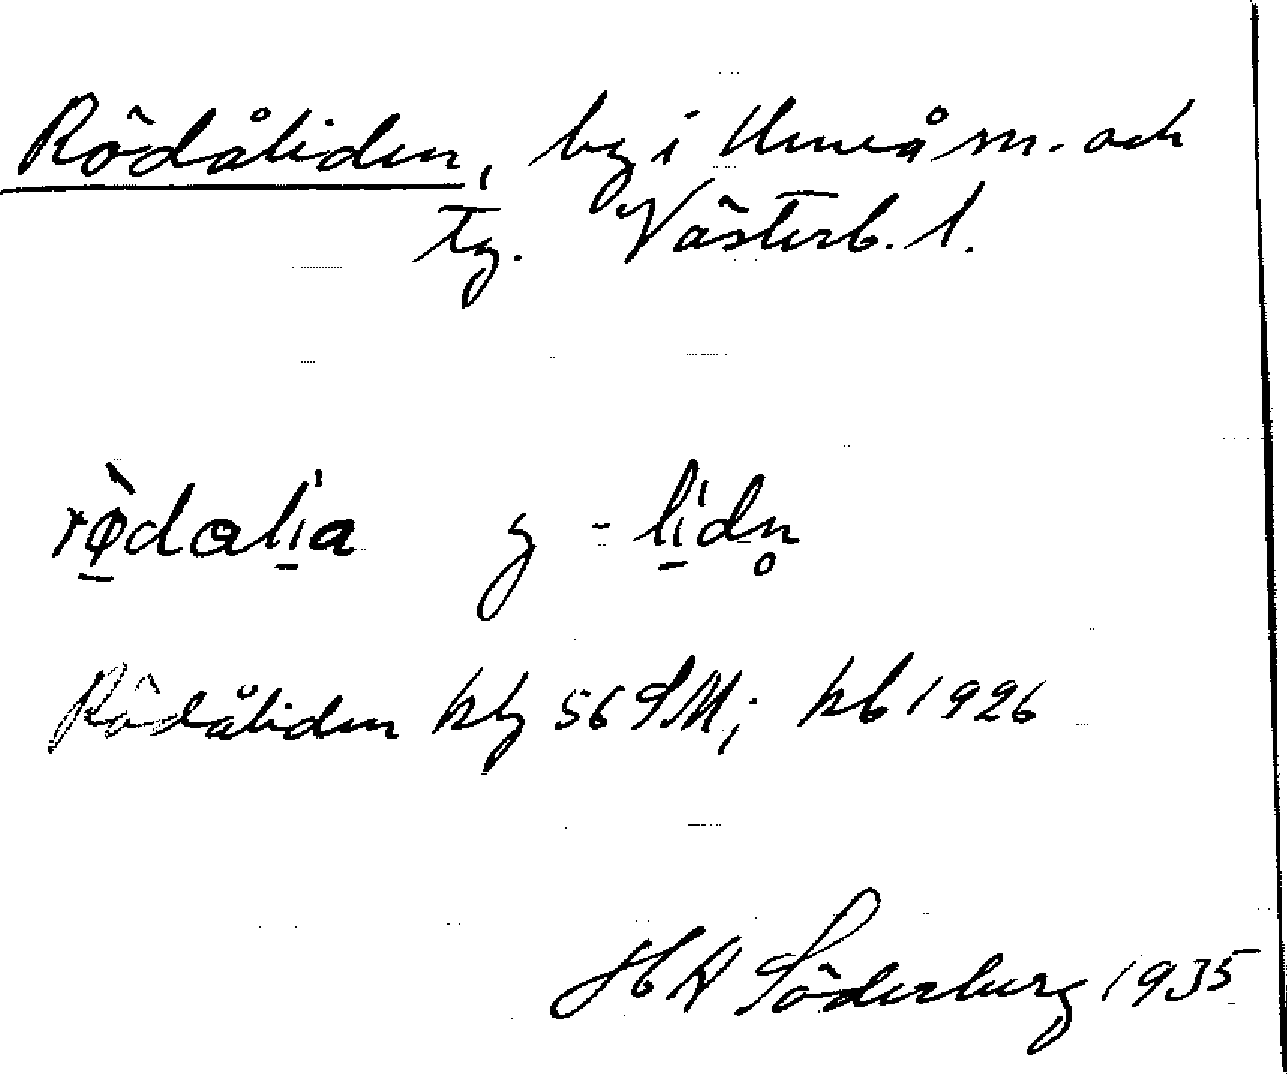 Rödåliden, by i Umeå sn. och
tg. Västerb. l.
rø̀dalia y -lidn̥
Rödåliden kby 56 SM; kb 1926
H A Söderberg 1935